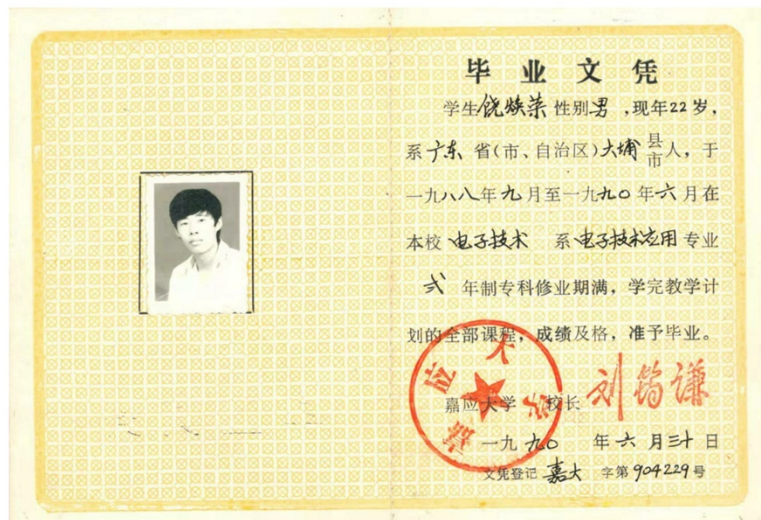 毕业文凭
学生饶焕荣性别男,现年22岁,
系广东省(市、自治区)大埔县市人,于
一九八八年九月至一九九〇年六月在
本校电子技术系电子技术应用专业
弍年制专科修业期满,学完教学计
划的全部课程,成绩及格,准予毕业。
嘉应大学
嘉应大学 校长 刘锦谦
一九九〇年六月三十日
文凭登记嘉大字第904229号